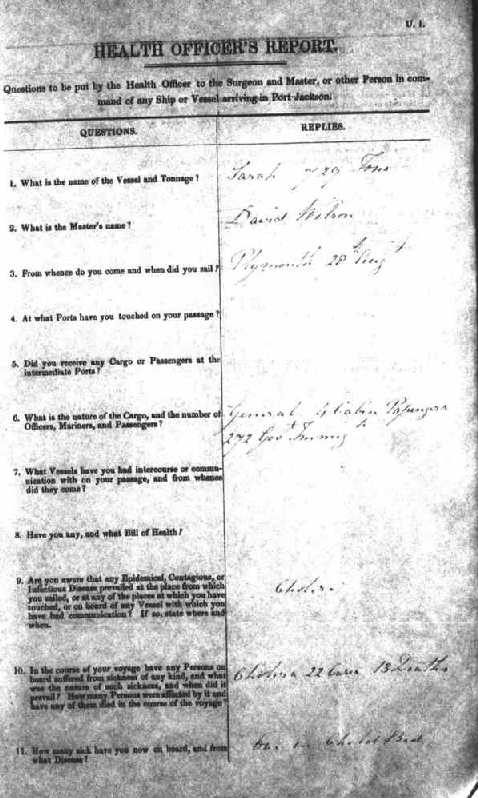 U. 1.
HEALTH OFFICER'S REPORT.
Questions to be put by the Health Officer to the Surgeon and Master, or other Person in com-
mand of any Ship or Vessel arriving in Port Jackson.
QUESTIONS.
REPLIES.
1. What is the name of the Vessel and Tonnage?
Sarah 729 Tons
2. What is the Master's name?
David
3. From whence do you come and when did you sail?
Plymouth 28th Augt
4. At what Ports have you touched on your passage?
5. Did you receive any Cargo or Passengers at the
intermediate Ports?
6. What is the nature of the Cargo, and the number of
Officers, Mariners, and Passengers?
General 4 Cabin Passengers
272 Govt
7. What Vessels have you had intercourse or commu-
nication with on your passage, and from whence
did they come?
8. Have you any, and what Bill of Health?
9. Are you aware that any Epidemical, Contagious, or
Infectious Disease prevailed at the place from which
you sailed, or at any of the places at which you have
touched, or on board of any Vessel with which you
have had communication? If so, state where and
when.
Cholera
10. In the course of your voyage have any Persons on
board suffered from sickness of any kind, and what
was the nature of such sickness, and when did it
prevail? How many Persons were affected by it and
have any of them died in the course of the voyage?
Cholera 22 Cases 13 Deaths
11. How many sick have you now on board, and from
what Disease?